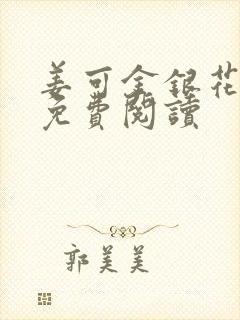 姜可金銀花
免費閱讀
郭美美